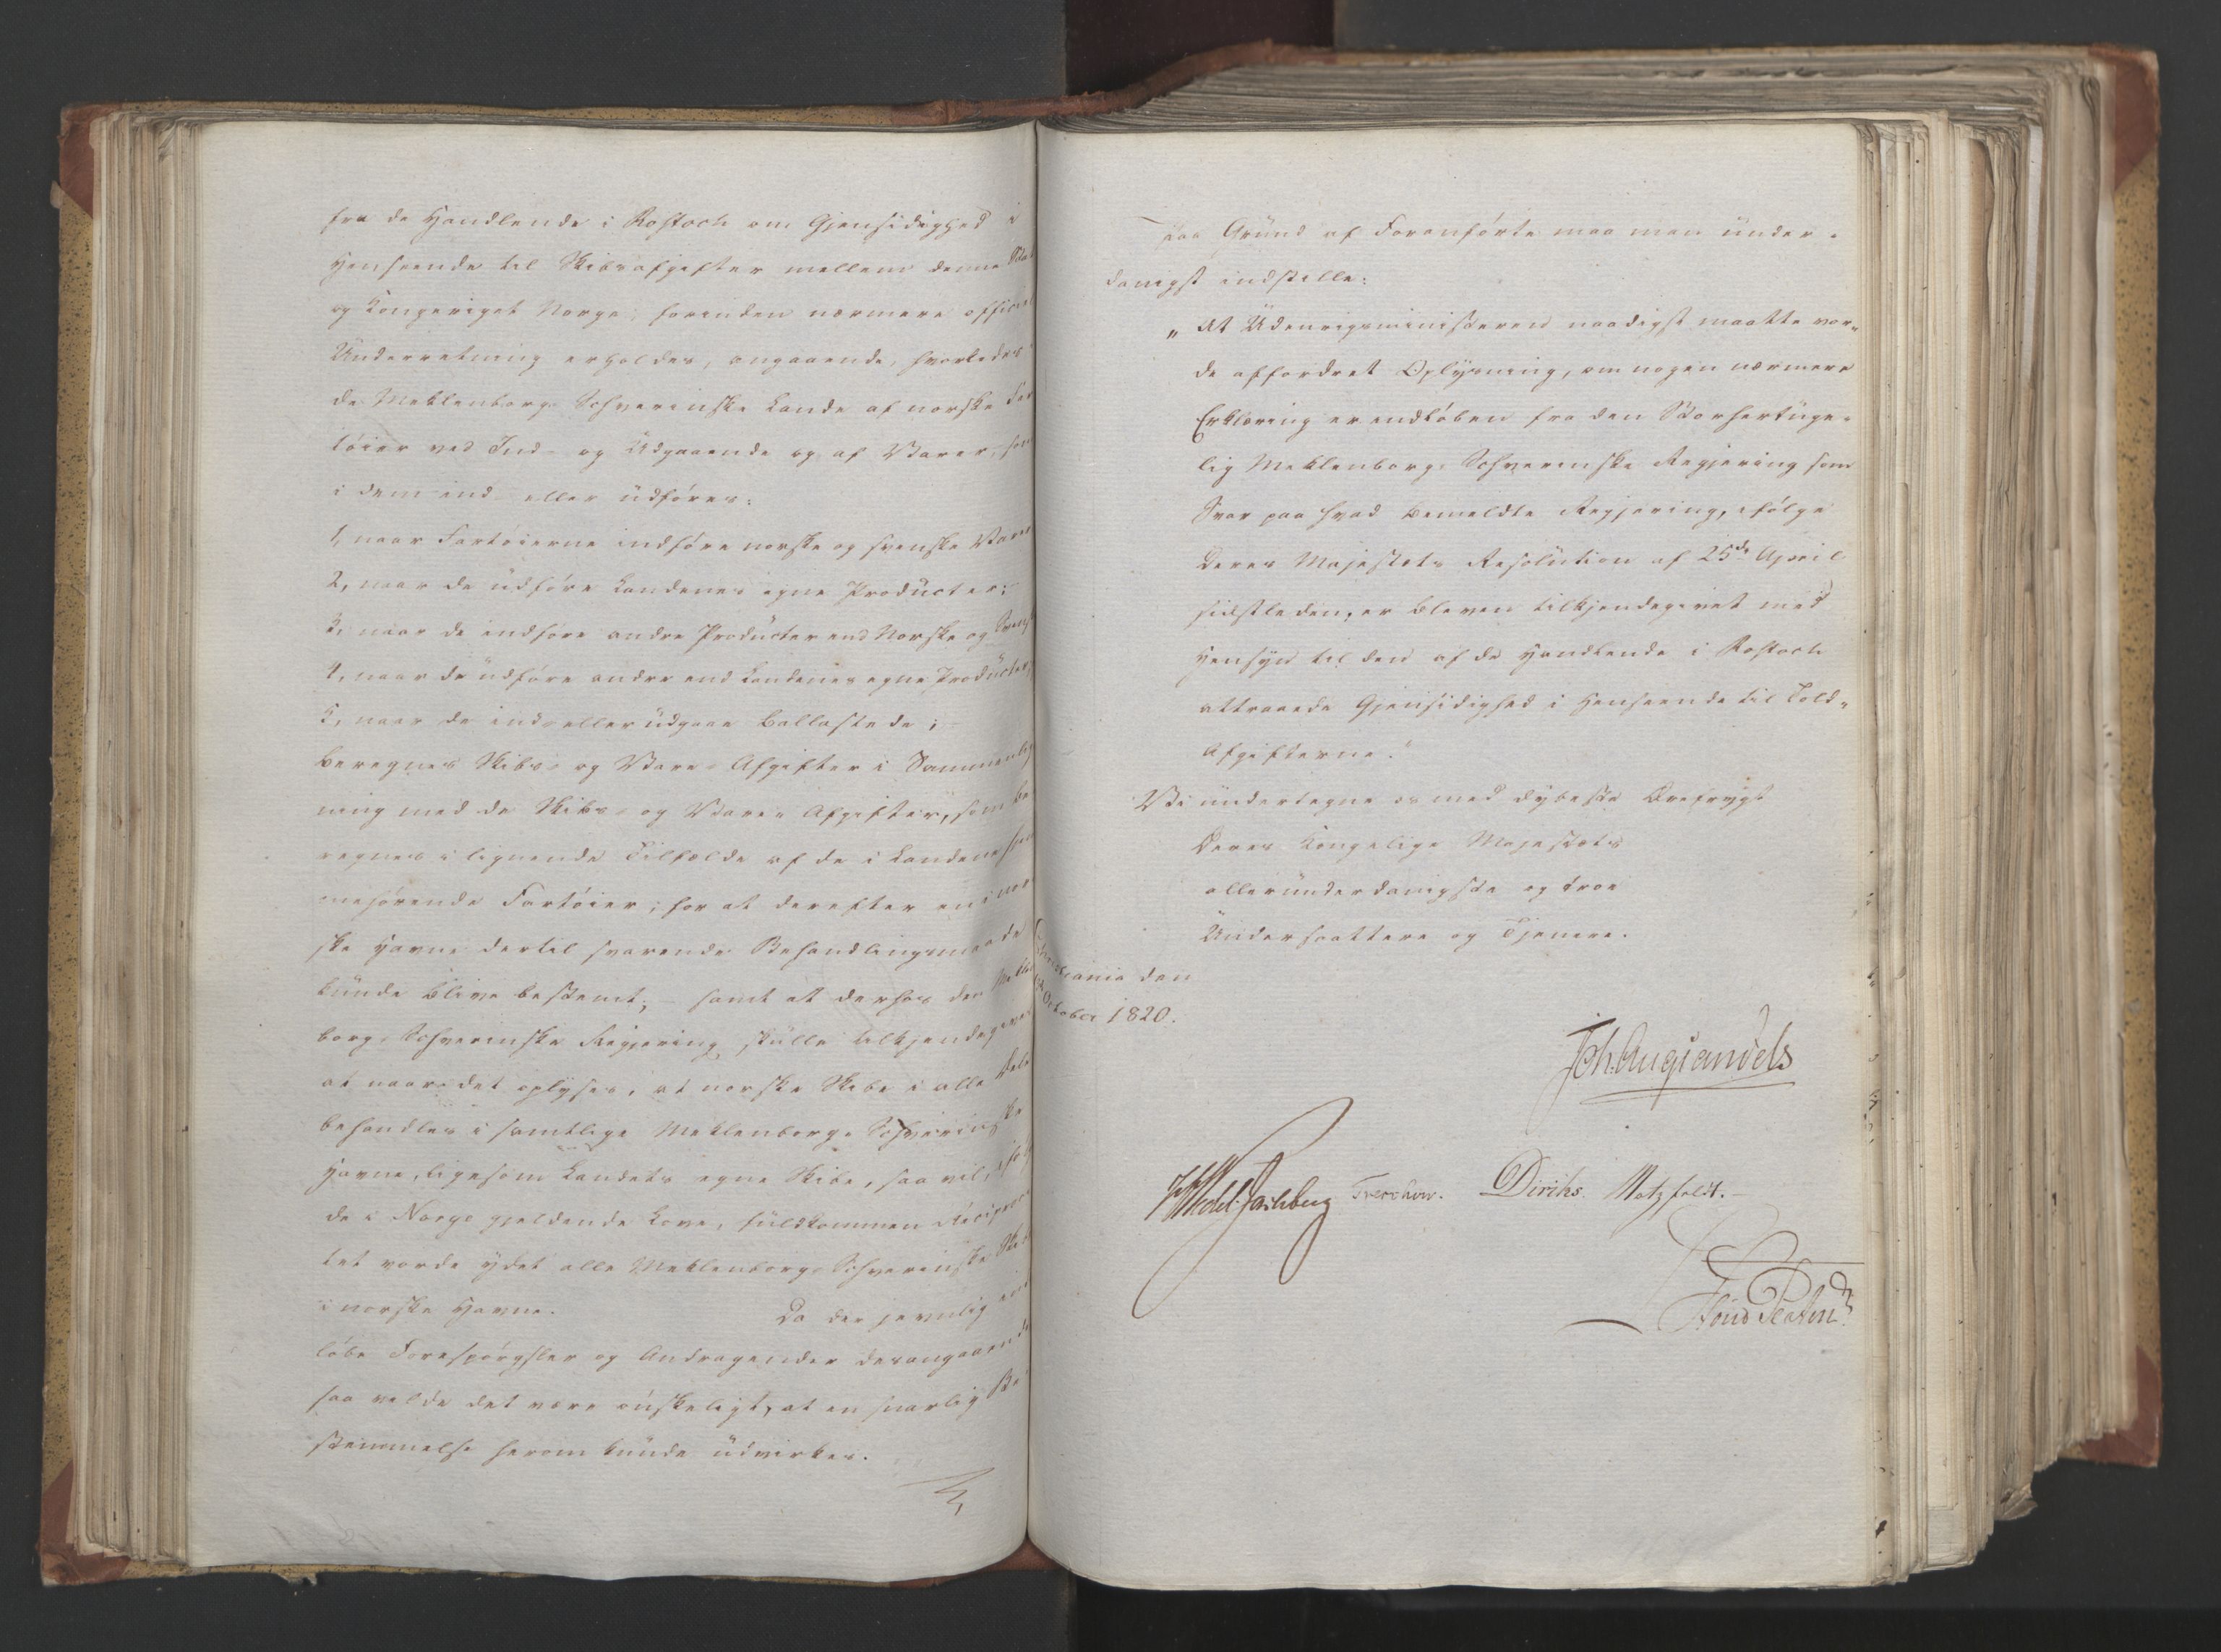 fra de Handlende i Rostoch om Gjensidighed i
Henseende til Skibsafgifter mellem denne Stat
og Kongeriget Norge, forinden nærmere officiel
Underretning erholdes, angaaende, hvorledes i
de Meklenborg-Schwerinske Lande af norske Far
tøier ved Ind- og Udgaaende og af Varer, som
i dem ind- eller udføres:
1, naar Fartøierne indføre norske og svenske Varer
2, naar de udføre Landenes egne Producter;
3, naar de indføre andre Producter end Norske og Svenske
4, naar de udføre andre end Landenes egne Producter,
5, naar de ind- eller udgaae Ballastede;
beregnes Skibs- og Vare-Afgifter i Sammenlig
ning med de Skibs- og Vare-Afgifter, som be
regnes i lignende Tilfælde af de i Landene hjem
mehørende Fartøier; for at derefter en i nor
ske Havne dertil svarende Behandlingsmaade
kunde blive bestemt; - samt at derhos den Meklen
borg-Schwerinske Regjering skulle tilkjendegives
at naar det oplyses, at norske Skibe i alle Dele
behandles i samtlige Meklenborg-Schwerinske
Havne, ligesom Landets egne Skibe, saa vil, ifølge
de i Norge gjeldende Love, fuldkommen Reciproci
tet vorde ydet alle Meklenborg-Schwerinske Skibe
i norske Havne. Da der jevnlig ind
løbe Forespørgsler og Andragender desangaaende
saa vilde det være ønskeligt, at en snarlig Be
stemmelse herom kunde udvirkes.
Paa Grund af Foranførte maa man under-
danigst indstille:
"At Udenrigsministeren naadigst maatte vor-
de affordret Oplysning, om nogen nærmere
Erklæring er indløben fra den Storhertuge-
lig Meklenborg-Schwerinske Regjering som
Svar paa hvad bemeldte Regjering, ifølge
Deres Majestæts Resolution af 25de April
sidstleden, er bleven tilkjendegivet med
Hensyn til den af de Handlende i Rostoch
attraaede Gjensidighed i Henseende til Told-
Afgifterne."
Vi undertegne os med dybeste Ærefrygt
Deres Kongelige Majestæts
allerunderdanigste og troe
Undersaattere og Tjenere.
Christiania den
October 1820.
Joh. Aug Sandels
Wedel Jarlsberg Treschow. Diriks. Motzfeldt.